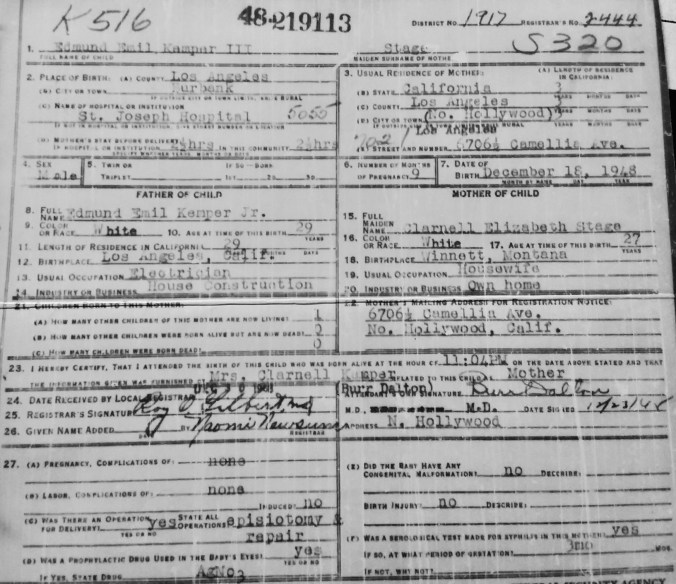 K516
48-219113
DISTRICT NO. 1917 REGISTRAR'S NO. 2444
1. Edmund Emil Kemper III Stage S320
FULL NAME OF CHILD MAIDEN SURNAME OF MOTHE
2. PLACE OF BIRTH: (A) COUNTY Los Angeles
(B) CITY OR TOWN Burbank
(C) NAME OF HOSPITAL OR INSTITUTION
St. Joseph Hospital 5055
(D) MOTHER'S STAY BEFORE DELIVERY:
IN HOSPITAL OR INSTITUTION 2½hrs IN THIS COMMUNITY 2½hrs
3. USUAL RESIDENCE OF MOTHER: (A) LENGTH OF RESIDENCE IN CALIFORNIA:
(B) STATE California 3
YEARS MONTHS DAYS
(C) COUNTY Los Angeles
(D) CITY OR TOWN (No. Hollywood) 3
Los Angeles
(E) STREET AND NUMBER 6706½ Camellia Ave.
4. SEX Male 5. TWIN OR TRIPLET: IF SO—BORN 1ST. 2D. 3D.
6. NUMBER OF MONTHS OF PREGNANCY 9 7. DATE OF BIRTH December 18, 1948
MONTH BY NAME DAY YEAR
FATHER OF CHILD
8. FULL NAME Edmund Emil Kemper Jr.
9. COLOR OR RACE White 10. AGE AT TIME OF THIS BIRTH 29 YEARS
11. LENGTH OF RESIDENCE IN CALIFORNIA 29
YEARS MONTHS DAYS
12. BIRTHPLACE Los Angeles, Calif.
13. USUAL OCCUPATION Electrician
14. INDUSTRY OR BUSINESS House Construction
MOTHER OF CHILD
15. FULL MAIDEN NAME Clarnell Elizabeth Stage
16. COLOR OR RACE White 17. AGE AT TIME OF THIS BIRTH 27 YEARS
18. BIRTHPLACE Winnett, Montana
19. USUAL OCCUPATION Housewife
20. INDUSTRY OR BUSINESS Own home
21. CHILDREN BORN TO THIS MOTHER:
(A) HOW MANY OTHER CHILDREN OF THIS MOTHER ARE NOW LIVING? 1
(B) HOW MANY OTHER CHILDREN WERE BORN ALIVE BUT ARE NOW DEAD? 0
(C) HOW MANY CHILDREN WERE BORN DEAD? 0
22. MOTHER'S MAILING ADDRESS FOR REGISTRATION NOTICE:
6706½ Camellia Ave.
No. Hollywood, Calif.
23. I HEREBY CERTIFY, THAT I ATTENDED THE BIRTH OF THIS CHILD WHO WAS BORN ALIVE AT THE HOUR OF 11:04PM ON THE DATE ABOVE STATED AND THAT
THE INFORMATION GIVEN WAS FURNISHED BY Mrs. Clarnell Kemper RELATED TO THIS CHILD AS Mother
24. DATE RECEIVED BY LOCAL REGISTRAR
(Burr Dalton) ATTENDANT'S OWN SIGNATURE Burr Dalton
25. REGISTRAR'S SIGNATURE Roy O. Gilbert MD
M.D., M.D. DATE SIGNED 12/23/48
26. GIVEN NAME ADDED BY Naomi Newsum REGISTRAR
ADDRESS N. Hollywood
27. (A) PREGNANCY, COMPLICATIONS OF: none
(B) LABOR, COMPLICATIONS OF: none
INDUCED? no
(C) WAS THERE AN OPERATION FOR DELIVERY? yes STATE ALL OPERATIONS episiotomy &
YES OR NO repair
(D) WAS A PROPHYLACTIC DRUG USED IN THE BABY'S EYES? yes
YES OR NO
IF YES, STATE DRUG AgNo3
(E) DID THE BABY HAVE ANY
CONGENITAL MALFORMATION? no DESCRIBE:
BIRTH INJURY: no DESCRIBE:
(F) WAS A SEROLOGICAL TEST MADE FOR SYPHILIS IN THIS MOTHER? yes
YES OR NO
IF SO, AT WHAT PERIOD OF GESTATION? 3mo MOS.
IF NOT, WHY NOT?